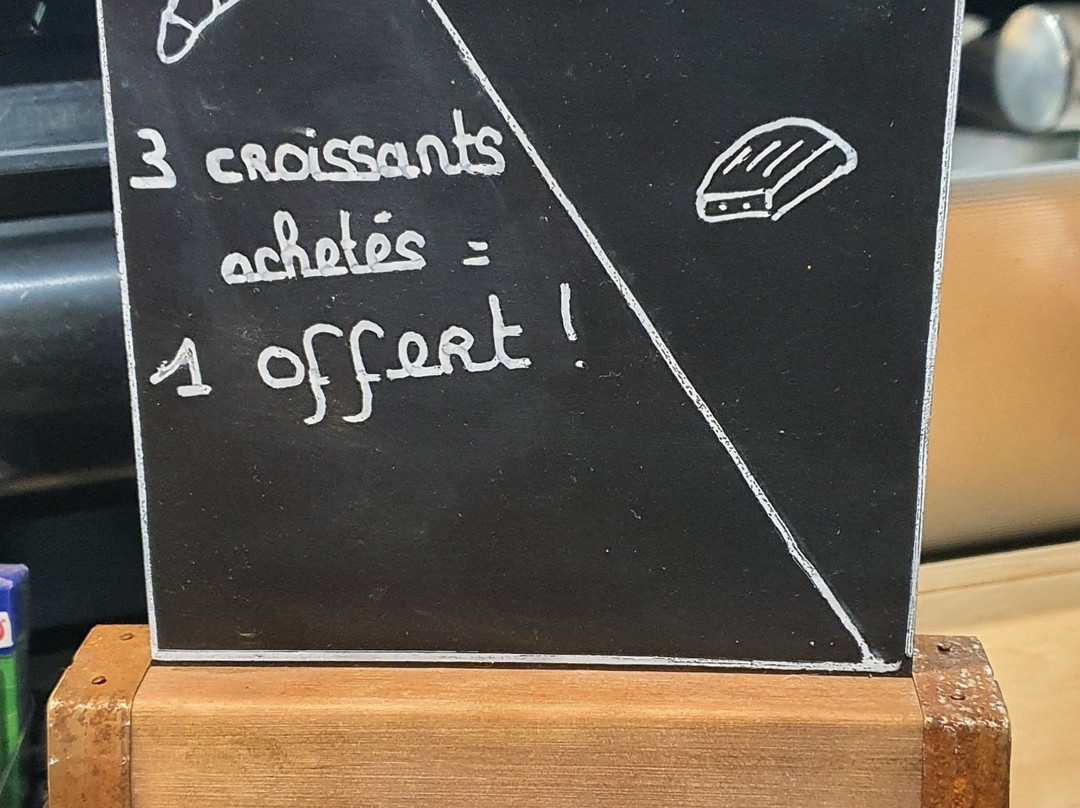 3 croissants
achetés =
1 offert !